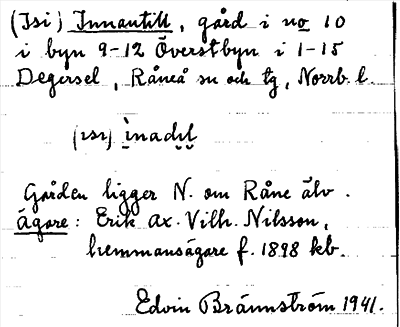 (Isi) Innantill, gård i no 10
i byn 9-12 Överstbyn i 1-15
Degersel, Råneå sn och tg, Norrb. l.
(ısı) ìnadıl
Gården ligger N. om Råne älv.
Ägare: Erik Ax. Vilh. Nilsson,
hemmansägare f. 1898 kb.
Edvin Brännström 1941.